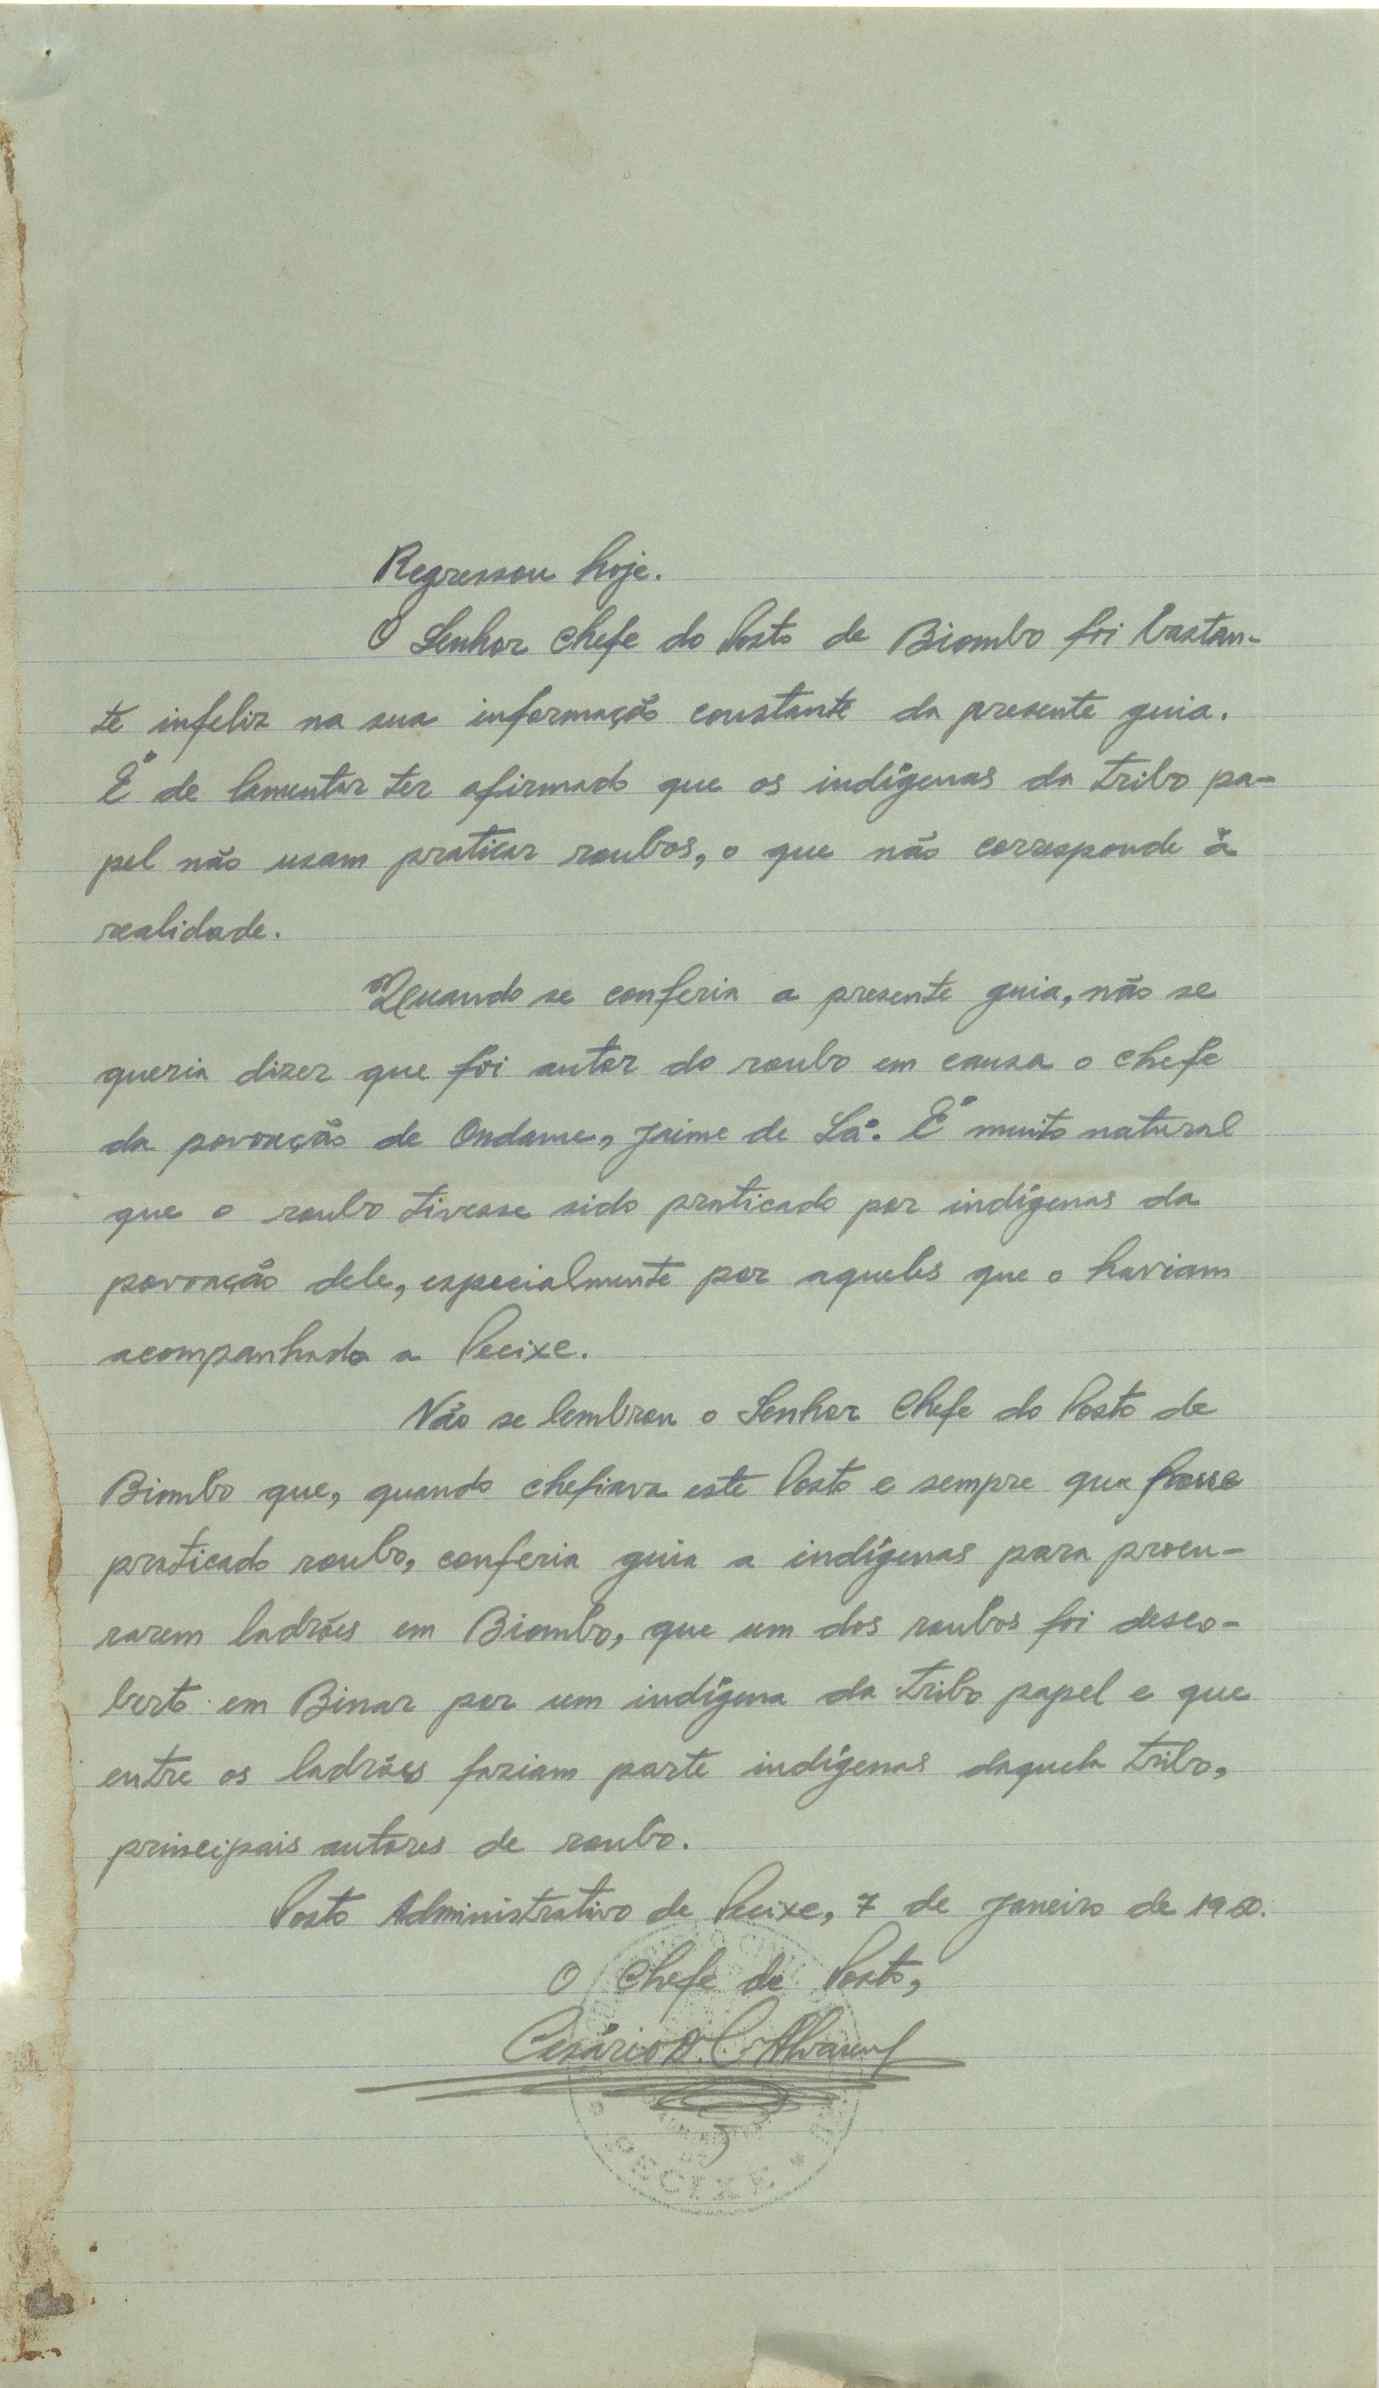 Regressou hoje.
O Senhor Chefe do Posto de Biombo foi bastan-
te infeliz na sua informação constante da presente guia.
É de lamentar ter afirmado que os indígenas da tribo pa-
pel não usam praticar roubos, o que não corresponde à
realidade.
Quando se conferia a presente guia, não se
queria dizer que foi autor do roubo em causa o chefe
da povoação de Ondame, Jaime de Sá. É muito natural
que o roubo tivesse sido praticado por indígenas da
povoação dele, especialmente por aqueles que o haviam
acompanhado a Pecixe.
Não se lembrou o Senhor Chefe do Posto de
Biombo que, quando chefiava este Posto e sempre que fosse
praticado roubo, conferia guia a indígenas para procu-
rarem ladrões em Biombo, que um dos roubos foi desco-
berto em Binar por um indígena da tribo papel e que
entre os ladrões faziam parte indígenas daquela tribo,
principais autores de roubo.
Posto Administrativo de Pecixe, 7 de Janeiro de 1960.
O Chefe de Posto,
Cesário D. C. Alvarenga
PECIXE